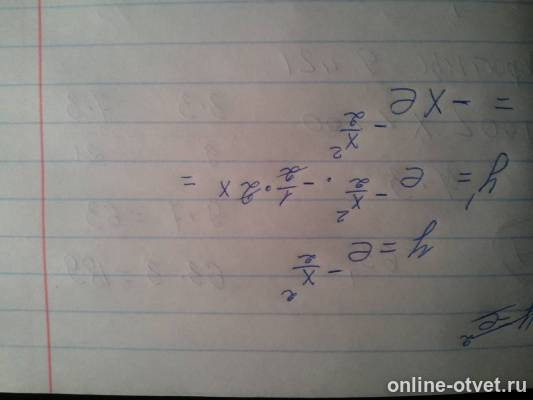 y = e^{-x²/2}
y' = e^{-x²/2} · -1/2 · 2x =
= -xe^{-x²/2}
online-otvet.ru